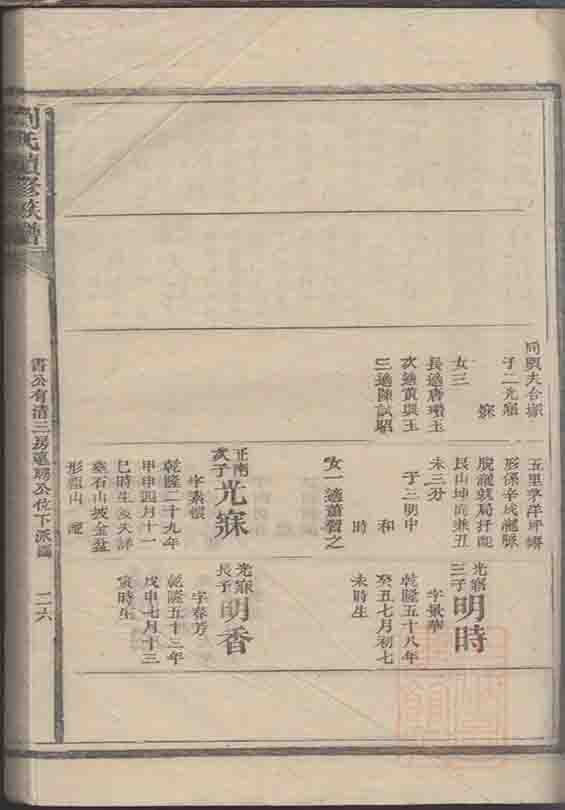 劉氏續修族譜
書公有清三房
公位下派
二六
同與夫合塚
子二光
寀
女三
長適唐
次適黃與玉
三適陳試昭
五里亭洋坪
形保辛戌龍脈
艮山坤向兼丑
未三分
子三明中
和
時
女一適董賢之
正南
次子
光寀
字素懷
乾隆二十九年
甲申四月十一
巳時生歿失詳
墓石山坡金盆
形艮山
光寀
三子
明時
字景華
乾隆五十八年
癸丑七月初七
未時生
光寀
長子
明香
字春芳
乾隆五十三年
戊申七月十三
寅時生